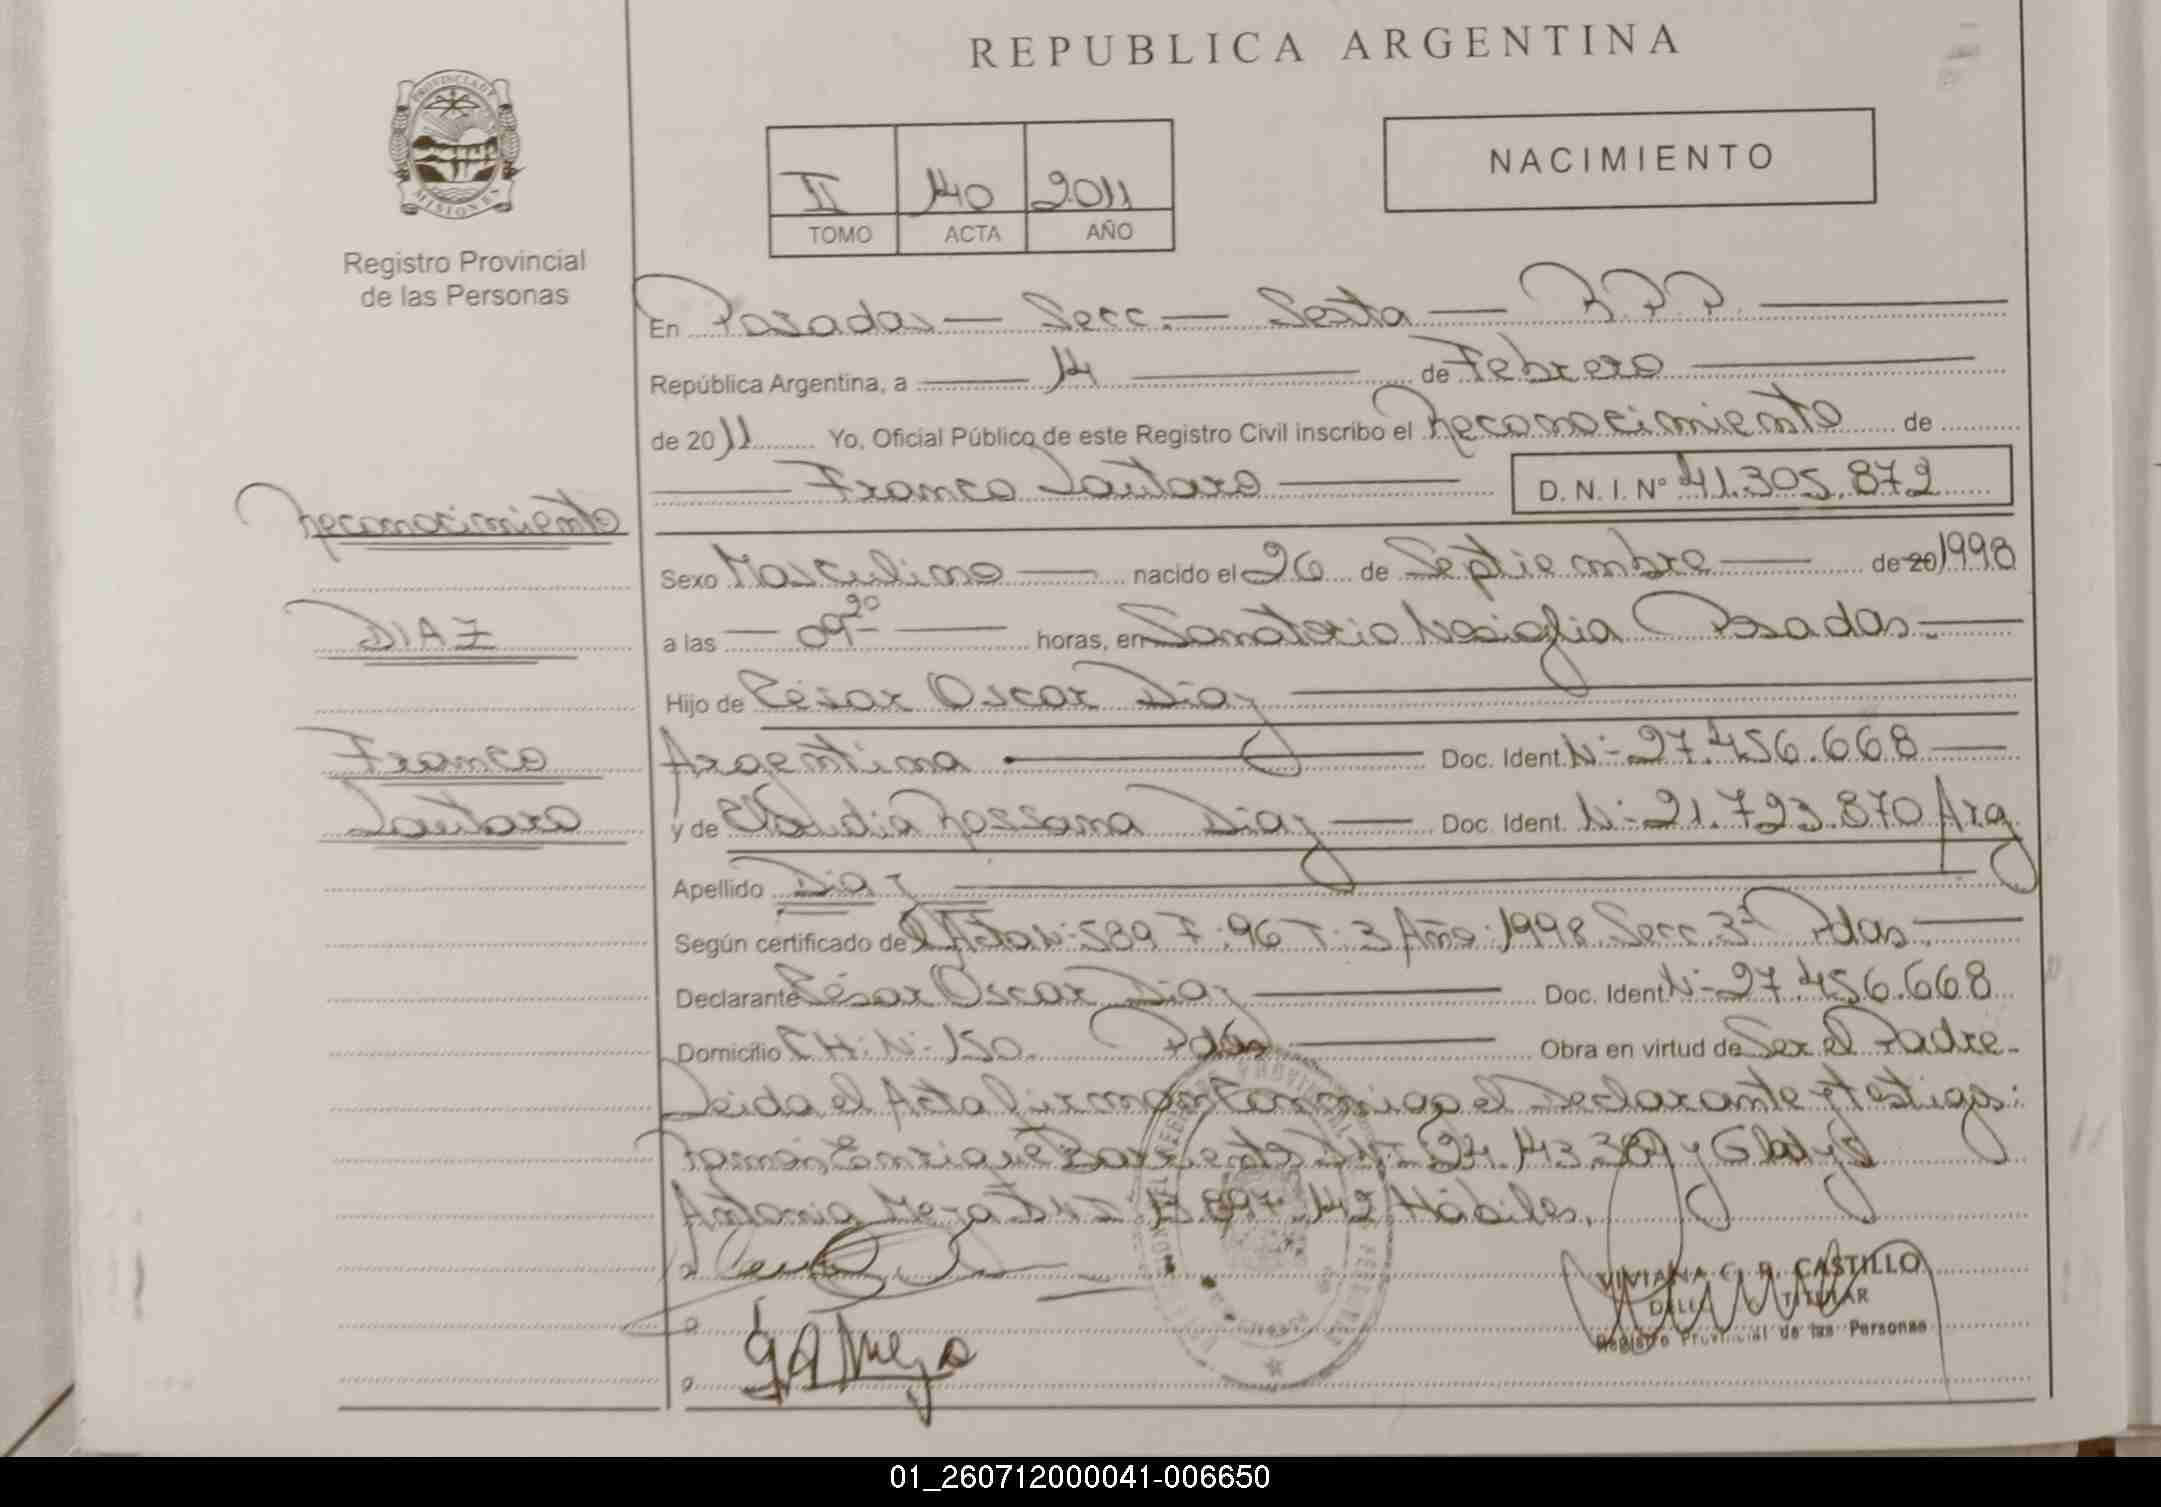 REPUBLICA ARGENTINA
PROVINCIA DE
MISIONES
Registro Provincial
de las Personas
II 140 2011
TOMO ACTA AÑO
NACIMIENTO
En Posadas — Secc. — Sexta — R.P.P.
República Argentina, a 14 de Febrero
de 2011 Yo, Oficial Público de este Registro Civil inscribo el Reconocimiento de
Franco Lautaro D.N.I. Nº 41.305.872
Reconocimiento
Sexo Masculino nacido el 26 de Septiembre de 20 1998
DIAZ
a las 09 20 horas, en Sanatorio Nosiglia Posadas.-
Hijo de César Oscar Diaz
Franco
Argentina Doc. Ident. Nº 27.456.668
Lautaro
y de Claudia Rossana Diaz Doc. Ident. Nº 21.723.870 Arg
Apellido Diaz
Según certificado de Acta Nº 589 F: 96 T: 3 Año: 1998 Secc 3ª Pdas.
Declarante César Oscar Diaz Doc. Ident. Nº 27.456.668
Domicilio CH: Nº 150. Pdas Obra en virtud de Ser el Padre.-
Leida el Acta firman conmigo el Declarante y testigos:
Ramón y Gladys
Antonia Hábiles.
VIVIANA C. R. CASTILLO
TITULAR
Registro Provincial de las Personas
01_260712000041-006650